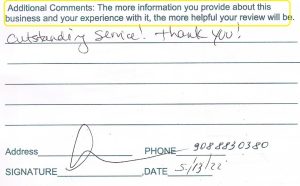 Additional Comments: The more information you provide about this
business and your experience with it, the more helpful your review will be.
Outstanding Service! Thank you!
Address PHONE 9088830380
SIGNATURE ,DATE 5/13/22